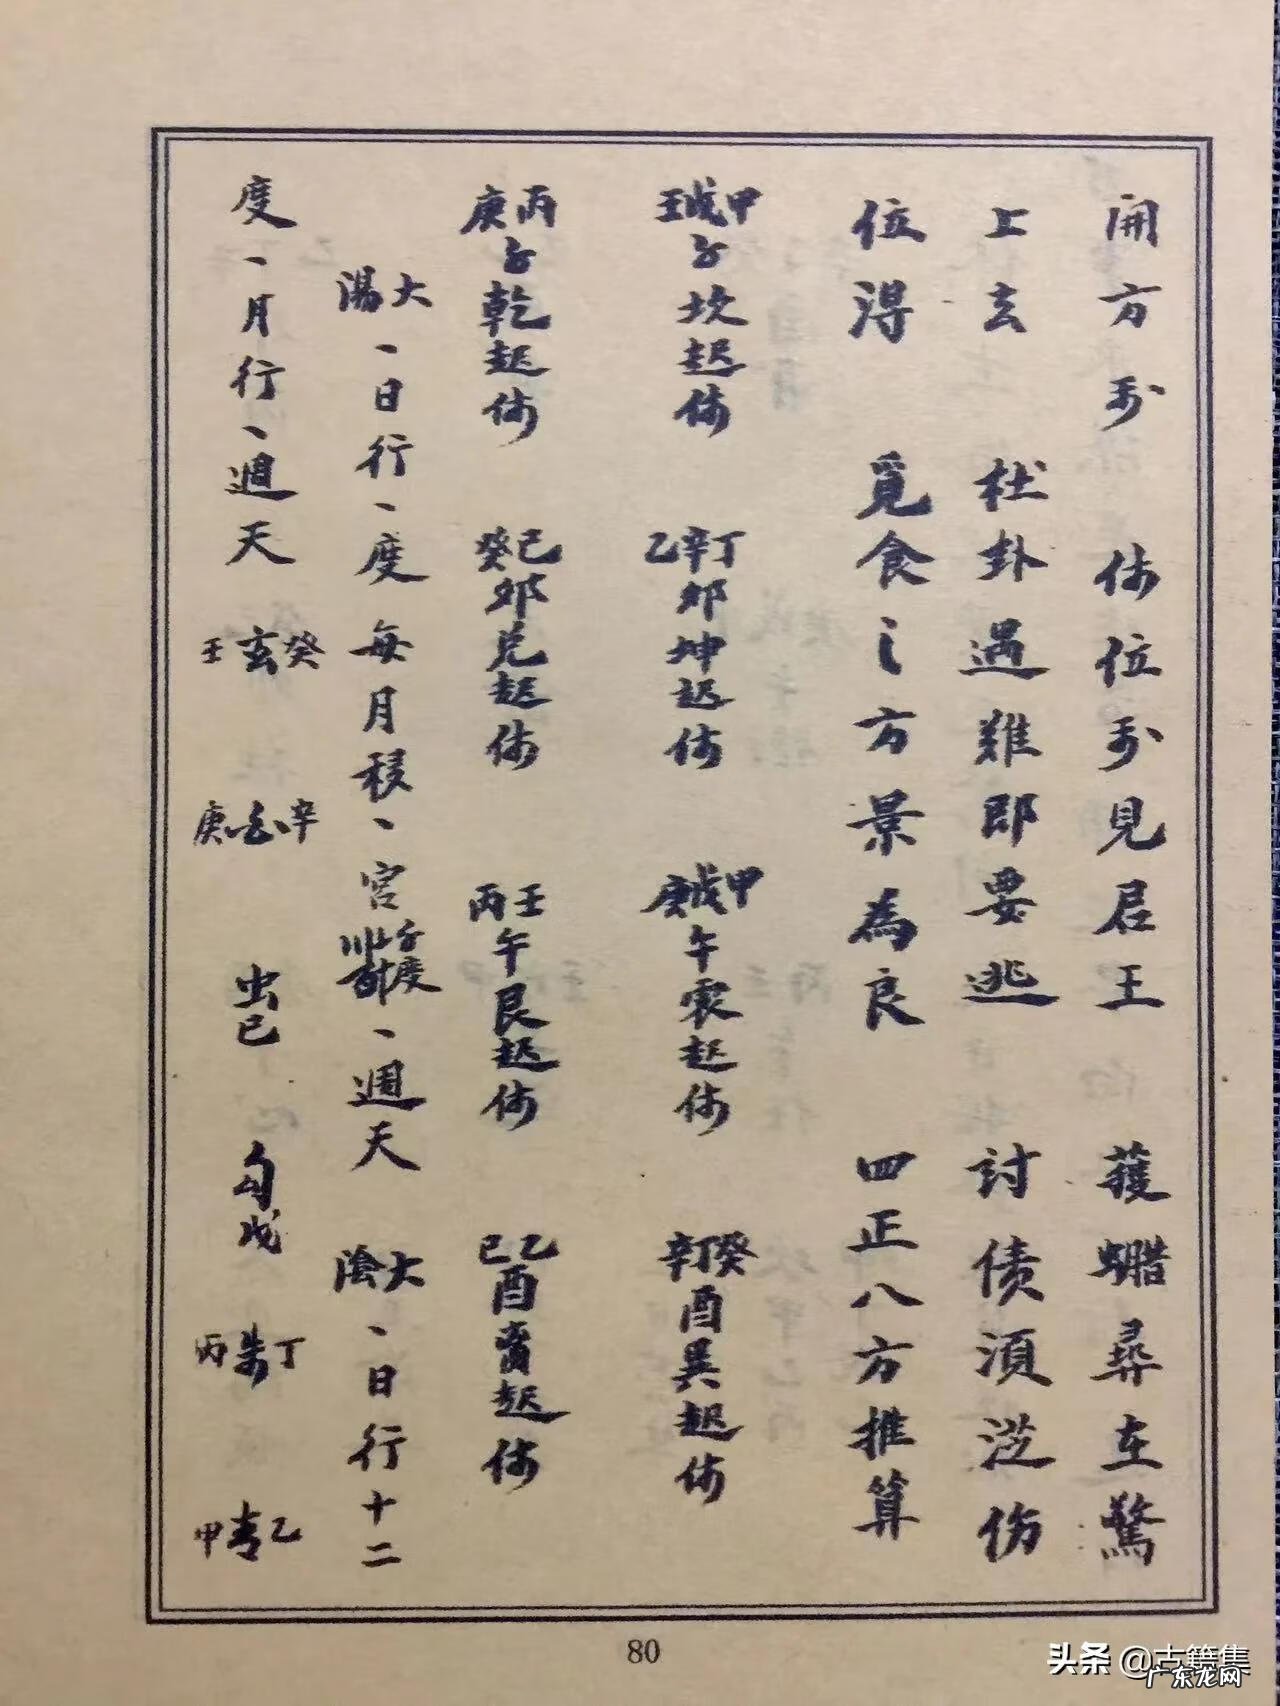 開方於 休位於見君王 獲蠟尋在驚
上去 杜卦遇難即要逃 討債須從伤
位得 覓食之方景為良 四正八方推算
甲戊壬子坎起休 丁辛乙卯坤起休 甲戊庚午震起休 癸丁辛酉巽起休
丙庚子乾起休 己癸卯兑起休 壬丙午艮起休 乙己酉離起休
大湯、日行、度每月移、宮 、週天 大陰、日行十二
度、月行、週天 癸玄壬 辛白庚 虫己 勾戊 丁朱丙 乙青甲
80
头条 @古籍集
广东龙网